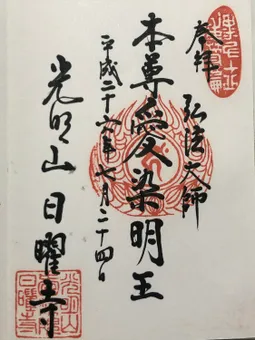 奉拝
弘法大師
本尊愛染明王
平成二十六年七月二十四日
光明山 日曜寺
光明山
日曜寺